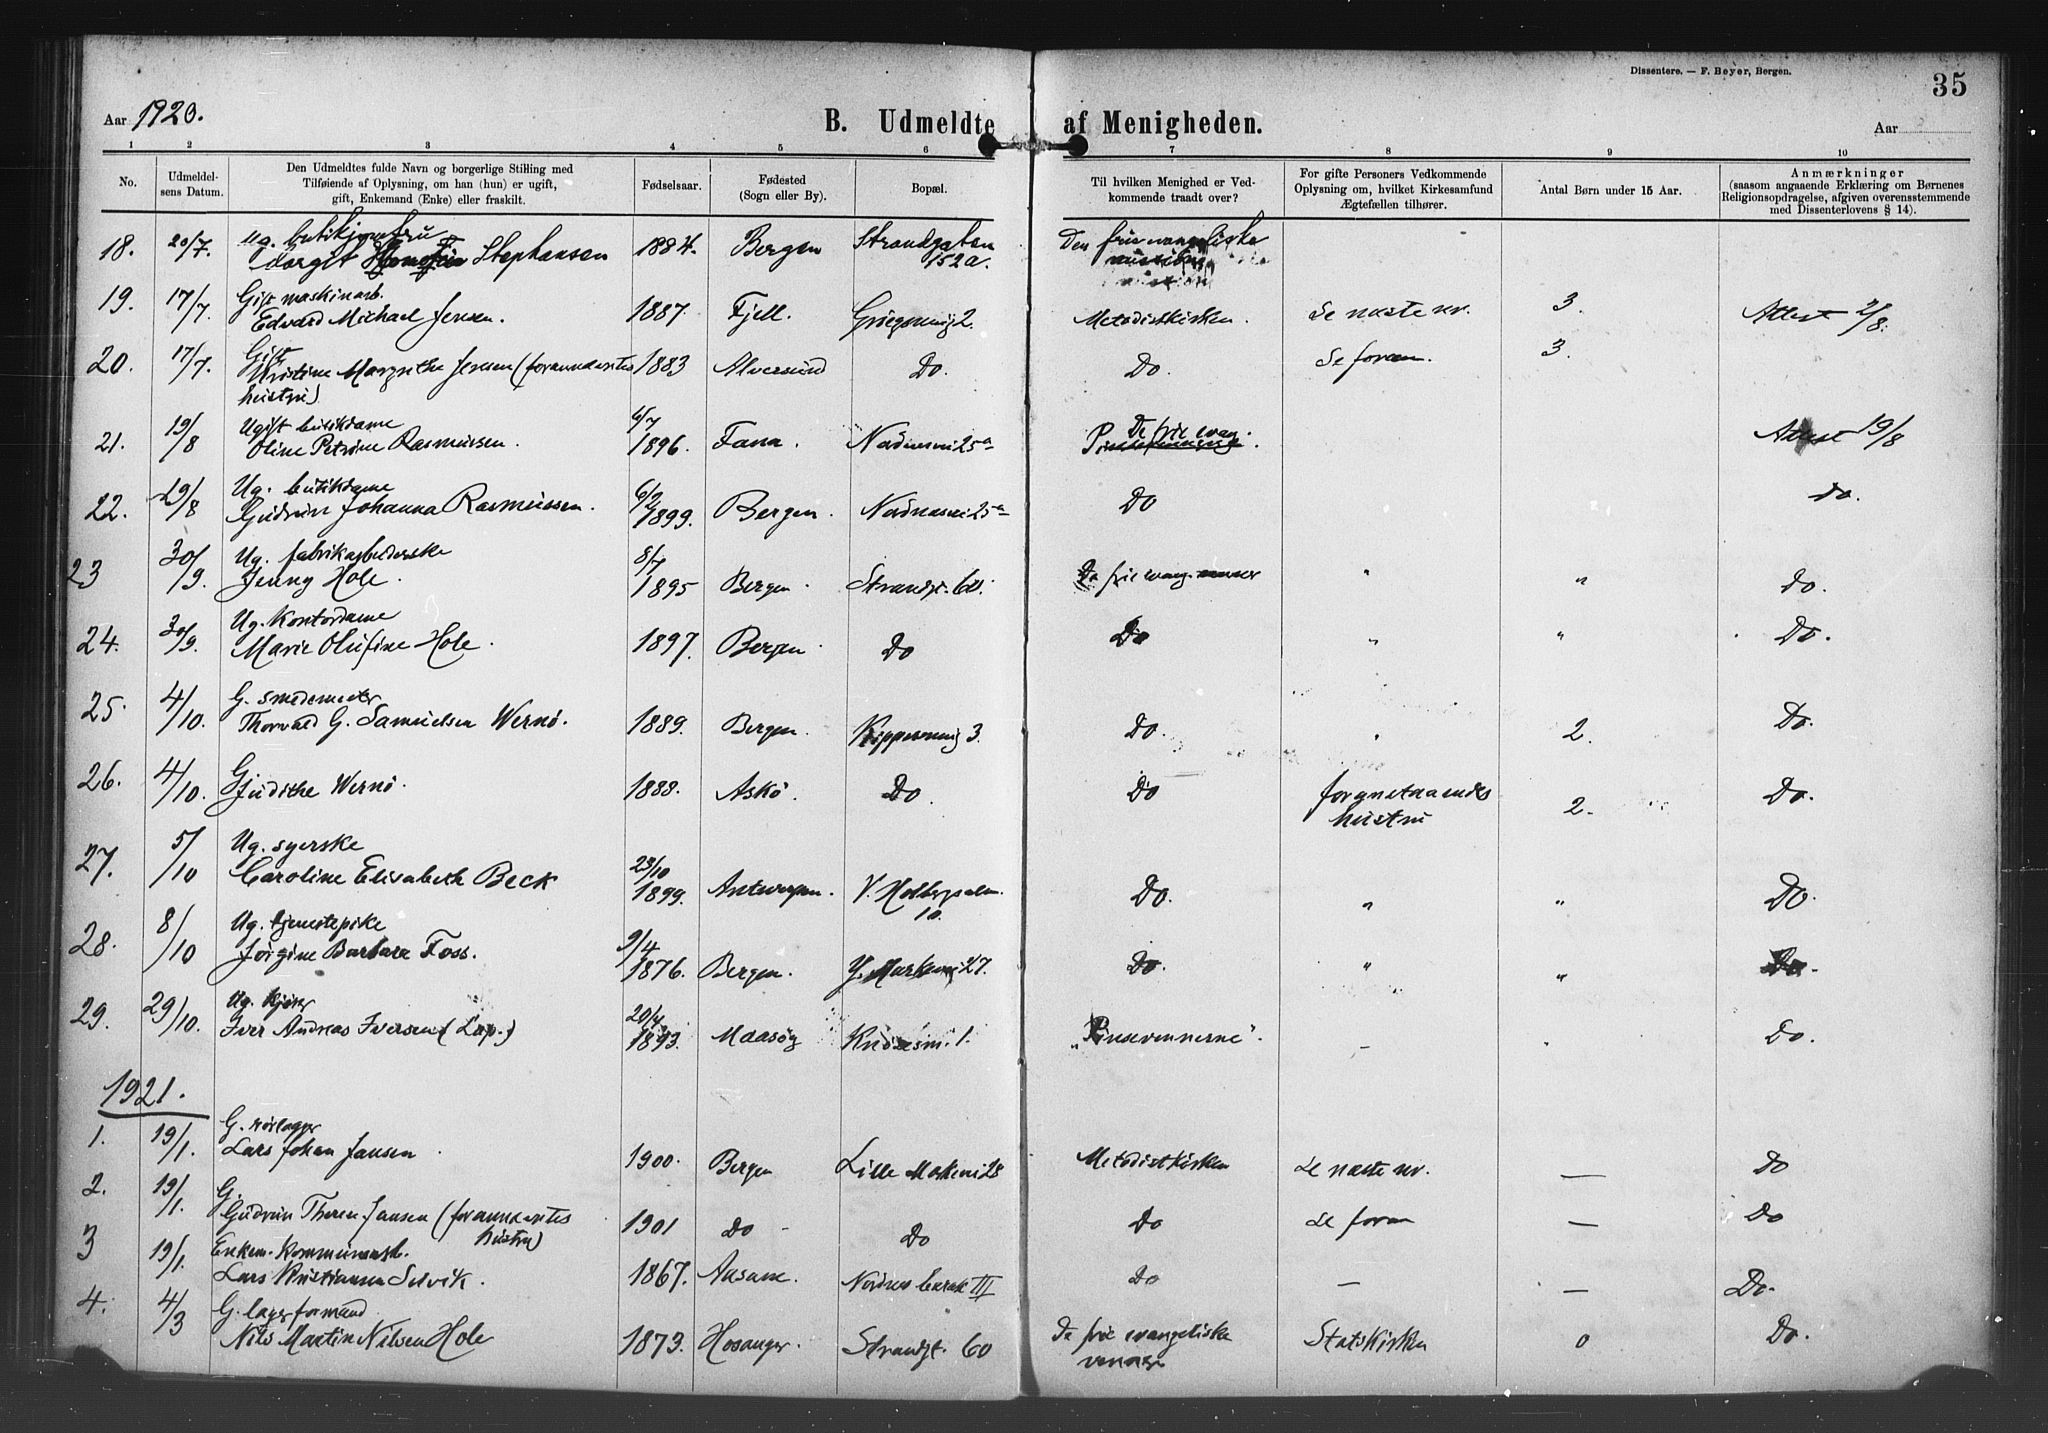 Dissentere. — F. Beyer, Bergen.
35
Aar 1920. B. Udmeldte af Menigheden. Aar
1 2 3 4 5 6 7 8 9 10
No. Udmeldelsens Datum. Den Udmeldtes fulde Navn og borgerlige Stilling med Tilføiende af Oplysning, om han (hun) er ugift, gift, Enkemand (Enke) eller fraskilt. Fødselsaar. Fødested (Sogn eller By). Bopæl. Til hvilken Menighed er Vedkommende traadt over? For gifte Personers Vedkommende Oplysning om, hvilket Kirkesamfund Ægtefællen tilhører. Antal Børn under 15 Aar. Anmærkninger (saasom angaaende Erklæring om Børnenes Religionsopdragelse, afgiven overensstemmende med Dissenterlovens § 14).
18. 20/7. Ug. Stephansen 1884. Bergen Strandgaten 152a. Den frie evangeliske
19. 17/7. Gift maskinarb. Edvard Michael Jensen. 1887. Fjell. 2. Metodistkirken. Se næste nr. 3. Attest 2/8.
20. 17/7. Gift Kristine Margrethe Jensen (forannævntes hustru) 1883 Alversund Do. Do. Se foran. 3.
21. 19/8 Ugift butikdame Oline Petrine Rasmussen. 6/7 1896. Fana. Nordnesvei 25a De frie evang. Attest 19/8
22. 19/8 Ug. butikdame Gudrun Johanna Rasmussen. 6/2 1899. Bergen. Nordnesvei 25a Do Do.
23 30/9. Ug. fabrikarbeiderske Jenny Hole. 8/7 1895 Bergen. Strandgt. 60. De frie evang. " " Do.
24. 30/9. Ug. Kontordame Marie Olufine Hole. 1897. Bergen. Do Do " " Do.
25. 4/10. G. smedemester Thorvald G. Samuelsen Wernö. 1889. Bergen. 3. Do. 2. Do.
26. 4/10. G. Judithe Wernö. 1888. Askö. Do. Do foranstaaendes hustru 2. Do.
27. 5/10 Ug. syerske Caroline Elisabeth Beck 23/10 1899. Antwerpen. V. Holbergsalm. 10. Do. " " Do.
28. 8/10 Ug. tjenestepike Jörgine Barbara Foss. 9/4 1876. Bergen. Y. Markevei 27. Do. " " Do.
29. 29/10. Ug. Iver Andreas Iversen (Lap.) 20/4 1893. Maasöy 1. "Pinsevennerne". – Do.
1921.
1. 19/1. G. Lars Johan Jansen 1900. Bergen Lille Markevei 28 Metodistkirken Se næste nr. — Do
2. 19/1. G. Gudrun Jansen (forannævntes hustru) 1901 Do Do Do Se foran — Do
3 19/1. Enkem. Kommunearb. Lars Kristiansen Selvik. 1867. Aasane. Nordnes barak III Do — — Do.
4. 4/3 G. lagerformand Nils Martin Nilsen Hole 1873. Hosanger. Strandgt. 60 De frie evangeliske venner Statskirken 0 Do.